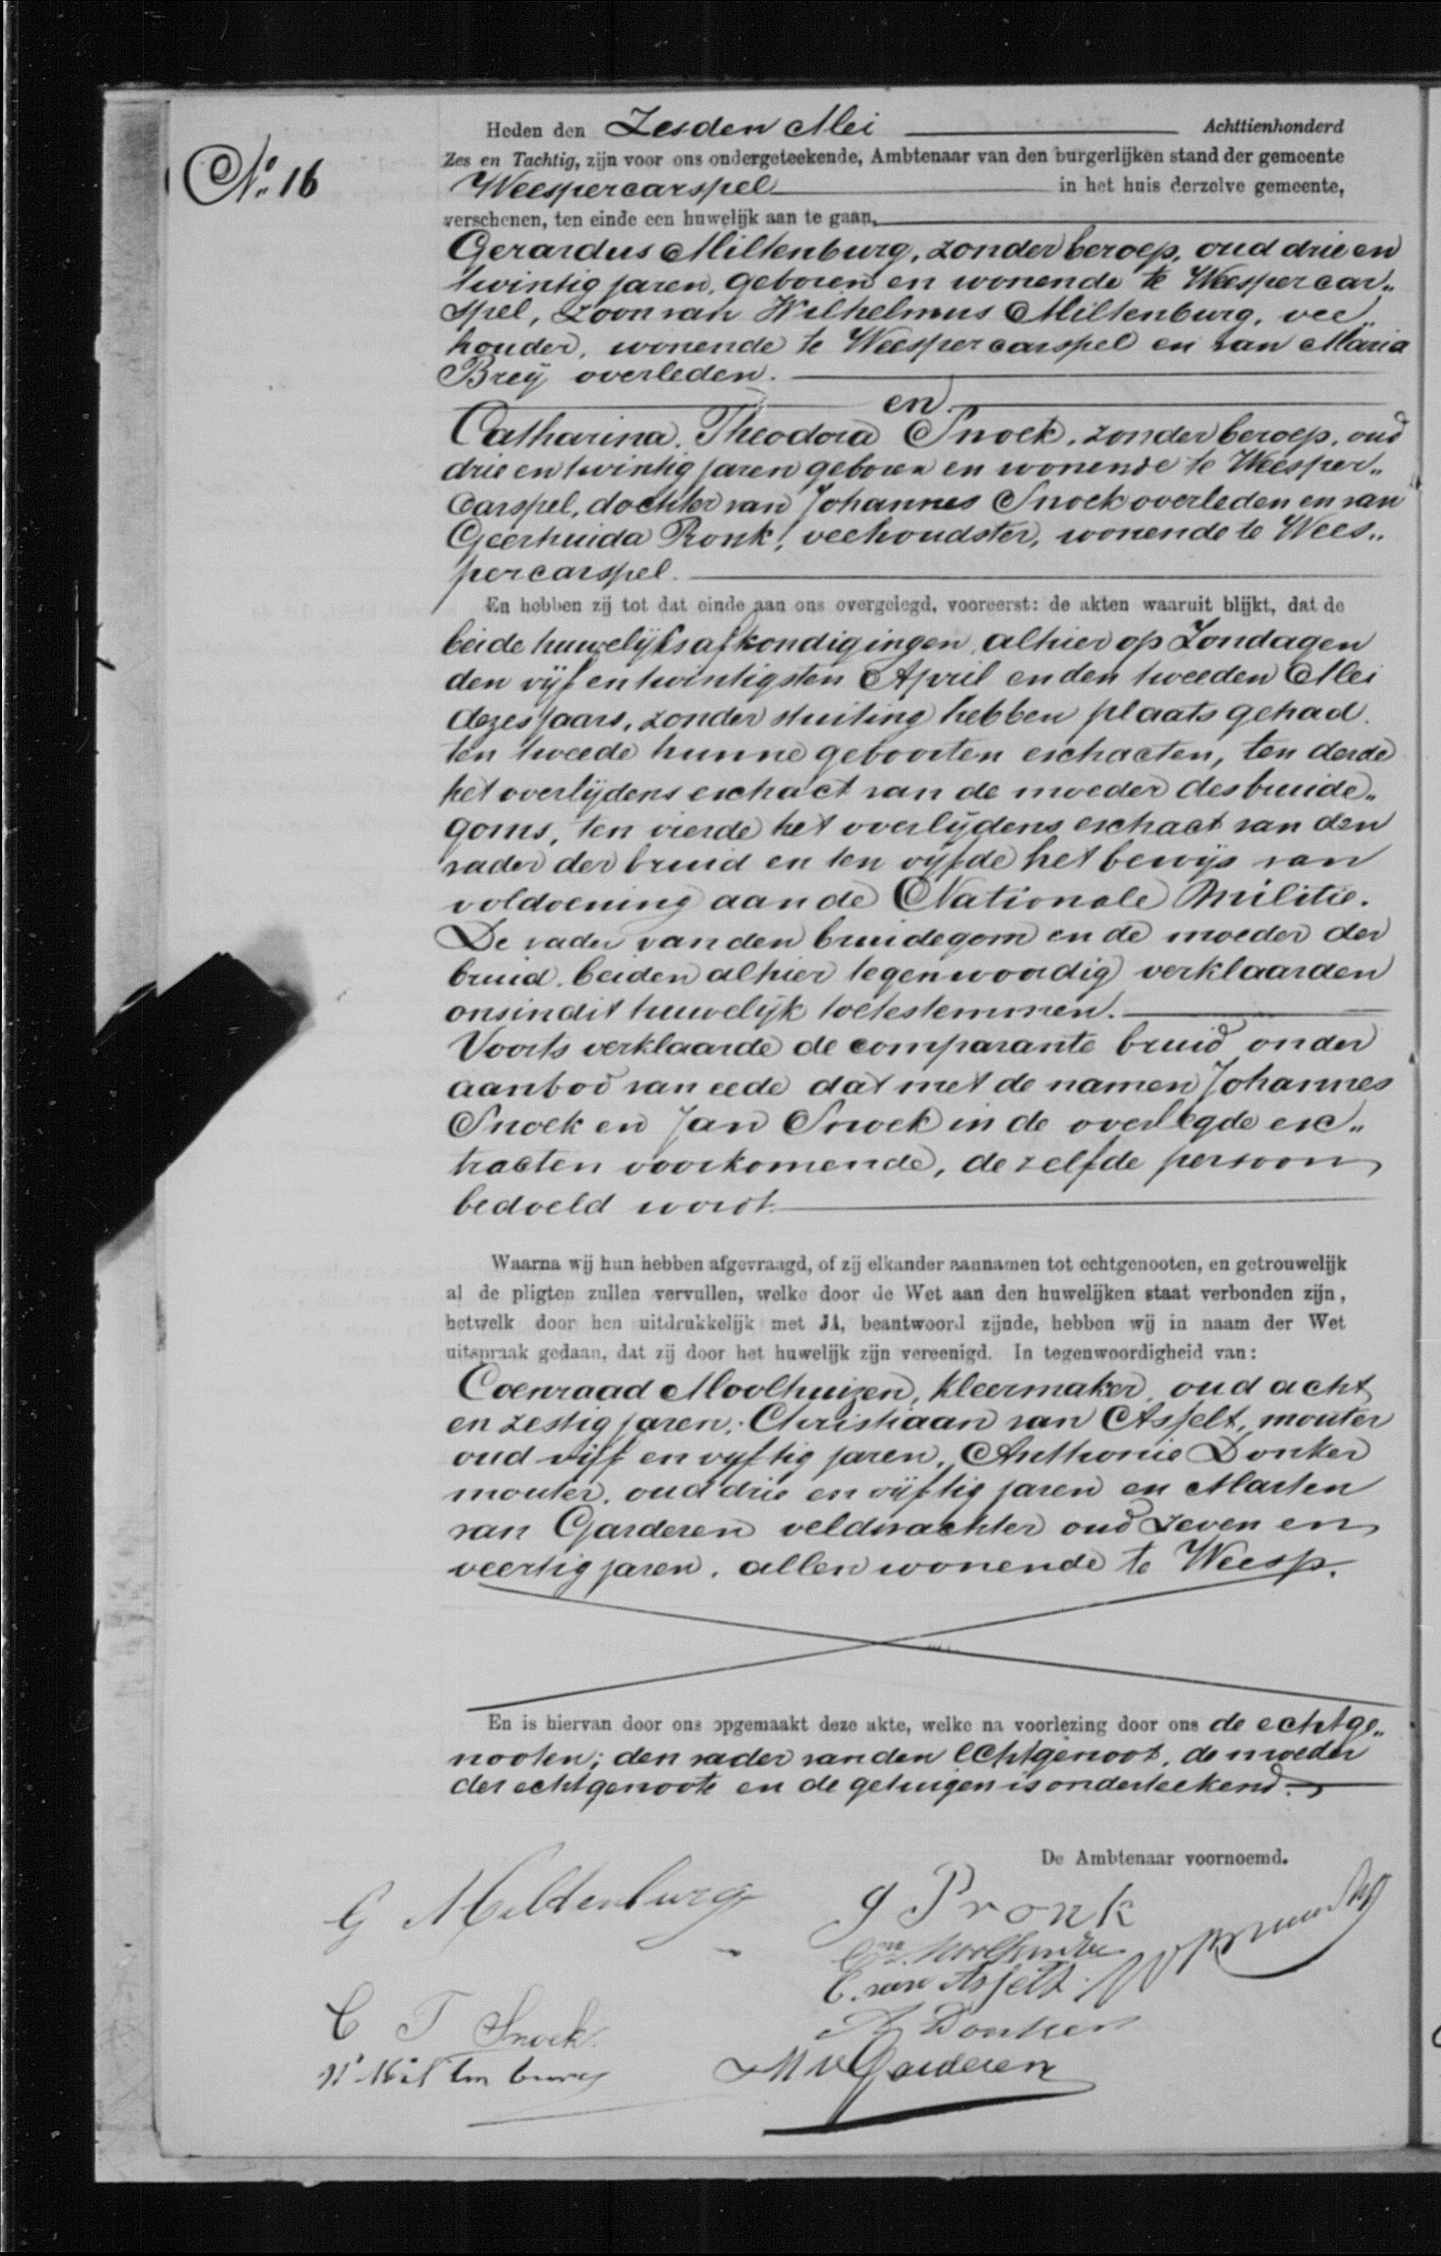 No. 16
Heden den Zesden Mei Achttienhonderd
Zes en Tachtig, zijn voor ons ondergeteekende, Ambtenaar van den burgerlijken stand der gemeente
Weespercarspel in het huis derzelve gemeente,
verschenen, ten einde een huwelijk aan te gaan,
Gerardus Miltenburg, zonder beroep, oud drie en
twintig jaren, geboren en wonende te Weespercar„
spel, zoon van Wilhelmus Miltenburg, vee„
houder, wonende te Weespercarspel en van Maria
Breij overleden.
en
Catharina Theodora Snoek, zonder beroep, oud
drie en twintig jaren geboren en wonende te Weesper„
Carspel, dochter van Johannes Snoek overleden en van
Geerhuida Pronk, veehoudster, wonende te Wees„
percarspel.
En hebben zij tot dat einde aan ons overgelegd, vooreerst: de akten waaruit blijkt, dat de
beide huwelijksafkondigingen alhier op Zondagen
den vijf en twintigsten April en den tweeden Mei
dezes jaars, zonder stuiting hebben plaats gehad.
ten tweede hunne geboorten extracten, ten derde
het overlijdens extract van de moeder des bruide„
goms, ten vierde het overlijdens extract van den
vader der bruid en ten vijfde het bewijs van
voldoening aan de Nationale Militie.
De vader van den bruidegom en de moeder der
bruid, beiden alhier tegenwoordig verklaarden
ons in dit huwelijk toetestemmen.
Voorts verklaarde de comparante bruid onder
aanbod van eede dat met de namen Johannes
Snoek en Jan Snoek in de overlegde ex„
tracten voorkomende, de zelfde persoon
bedoeld wordt.
Waarna wij hun hebben afgevraagd, of zij elkander aannamen tot echtgenooten, en getrouwelijk
al de pligten zullen vervullen, welke door de Wet aan den huwelijken staat verbonden zijn,
hetwelk door hen uitdrukkelijk met JA, beantwoord zijnde, hebben wij in naam der Wet
uitspraak gedaan, dat zij door het huwelijk zijn vereenigd. In tegenwoordigheid van:
Coenraad Moolhuizen, kleermaker, oud acht
en zestig jaren, Christiaan van Asfelt, mouter
oud vijf en vijftig jaren, Anthonie Donker
mouter, oud drie en vijftig jaren en Marten
van Garderen veldwachter oud zeven en
veertig jaren, allen wonende te Weesp.
En is hiervan door ons opgemaakt deze akte, welke na voorlezing door ons de echtge„
nooten, den vader van den echtgenoot, de moeder
der echtgenoote en de getuigen is onderteekend.
De Ambtenaar voornoemd.
G Miltenburg
G Pronk
Moolhuizen
C. van Asfelt
C T Snoek
A Donker
W Miltenburg
M v Garderen